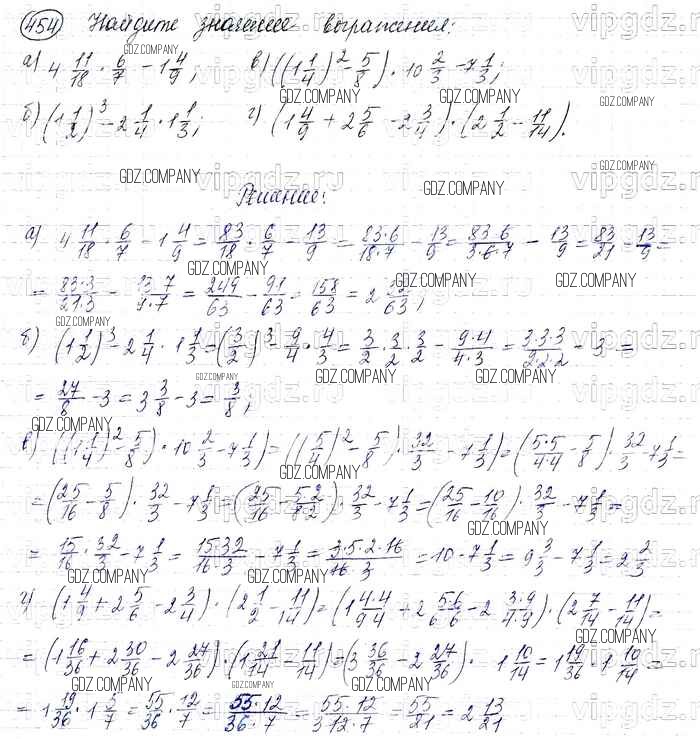 454 Найдите значение выражения:
а) 4 11/18 · 6/7 - 1 4/9; в) ((1 1/4)² - 5/8) · 10 2/3 - 7 1/3;
б) (1 1/2)³ - 2 1/4 · 1 1/3; г) (1 4/9 + 2 5/6 - 2 3/4) · (2 1/2 - 11/14).
Решение:
а) 4 11/18 · 6/7 - 1 4/9 = 83/18 · 6/7 - 13/9 = 83·6/18·7 - 13/9 = 83·6/3·6·7 - 13/9 = 83/21 - 13/9 =
= 83·3/21·3 - 13·7/9·7 = 249/63 - 91/63 = 158/63 = 2 32/63;
б) (1 1/2)³ - 2 1/4 · 1 1/3 = (3/2)³ - 9/4 · 4/3 = 3/2 · 3/2 · 3/2 - 9·4/4·3 = 3·3·3/2·2·2 - 3 =
= 27/8 - 3 = 3 3/8 - 3 = 3/8;
в) ((1 1/4)² - 5/8) · 10 2/3 - 7 1/3) = ((5/4)² - 5/8) · 32/3 - 7 1/3) = (5·5/4·4 - 5/8) · 32/3 - 7 1/3 =
= (25/16 - 5/8) · 32/3 - 7 1/3 = (25/16 - 5·2/8·2) · 32/3 - 7 1/3 = (25/16 - 10/16) · 32/3 - 7 1/3 =
= 15/16 · 32/3 - 7 1/3 = 15·32/16·3 - 7 1/3 = 3·5·2·16/16·3 = 10 - 7 1/3 = 9 3/3 - 7 1/3 = 2 2/3
г) (1 4/9 + 2 5/6 - 2 3/4) · (2 1/2 - 11/14) = (1 4·4/9·4 + 2 5·6/6·6 - 2 3·9/4·9) · (2 7/14 - 11/14) =
= (1 16/36 + 2 30/36 - 2 27/36) · (1 21/14 - 11/14) = (3 36/36 - 2 27/36) · 1 10/14 = 1 19/36 · 1 10/14 =
= 1 19/36 · 1 5/7 = 55/36 · 12/7 = 55·12/36·7 = 55·12/3·12·7 = 55/21 = 2 13/21
GDZ.COMPANY
vipgdz.ru